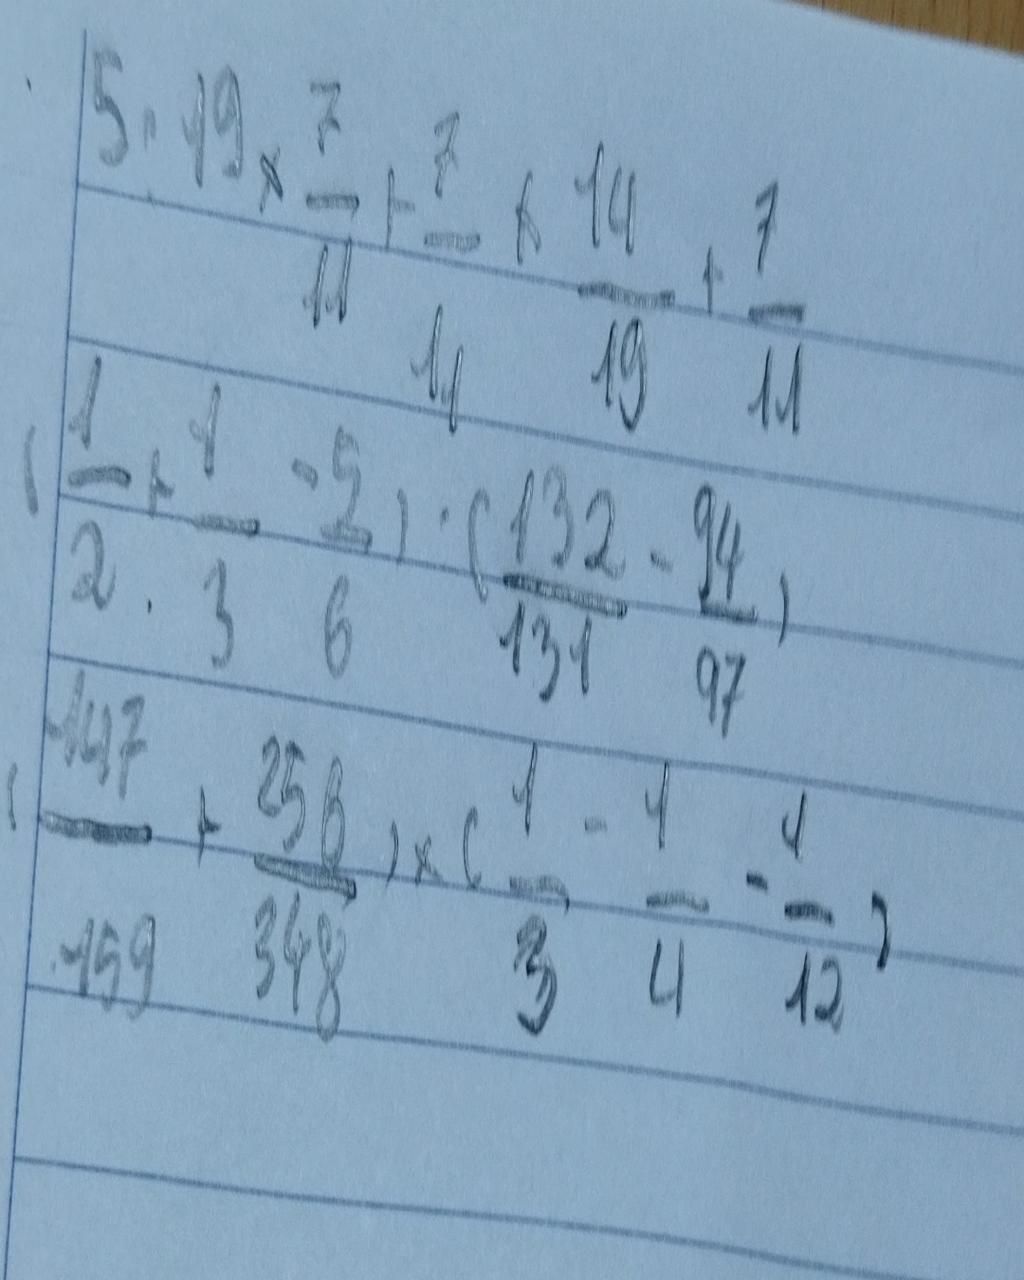 5. 19 × 7/11 + 7/11 × 14/19 + 7/11
(1/2 + 1/3 - 5/6) · (132/131 - 94/97)
(147/159 + 256/348) × (1/3 - 1/4 - 1/12)